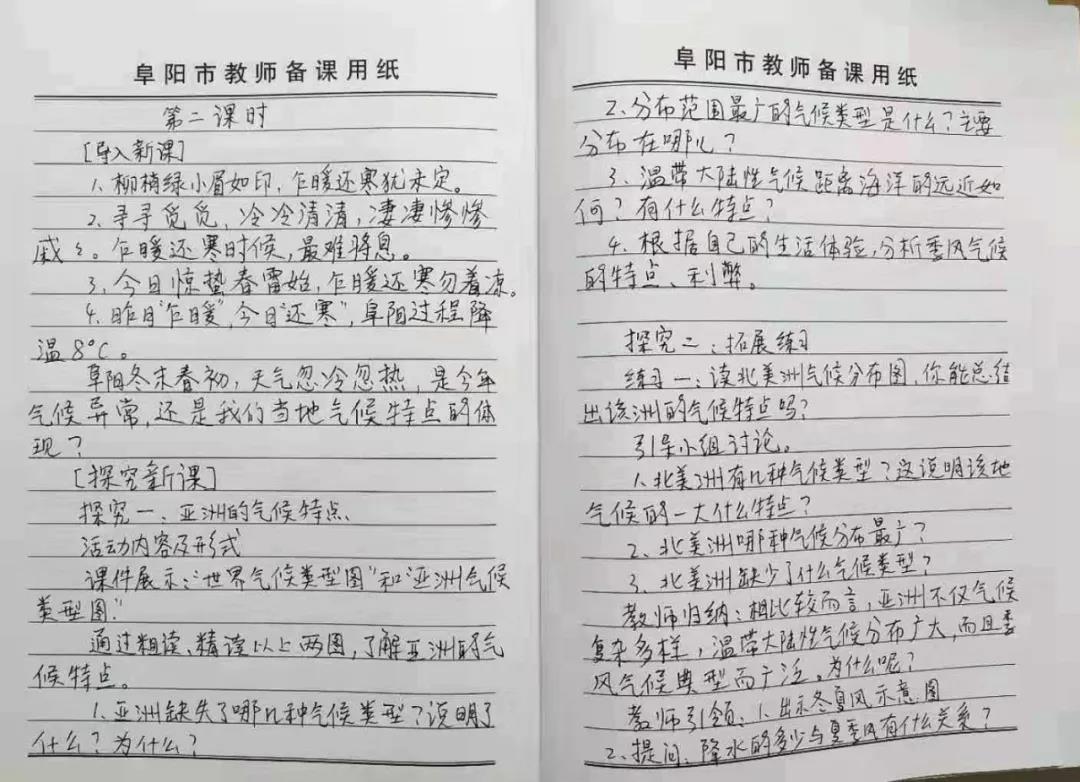 阜阳市教师备课用纸
第二课时
[导入新课]
1、柳梢绿小眉如印,乍暖还寒犹未定。
2、寻寻觅觅,冷冷清清,凄凄惨惨
戚々。乍暖还寒时候,最难将息。
3、今日惊蛰春雷始,乍暖还寒勿着凉。
4、昨日“乍暖”,今日“还寒”,阜阳过程降
温8℃。
阜阳冬末春初,天气忽冷忽热,是今年
气候异常,还是我们当地气候特点的体
现?
[探究新课]
探究一、亚洲的气候特点
活动内容及形式
课件展示:“世界气候类型图”和“亚洲气候
类型图”
通过粗读、精读以上两图,了解亚洲的气
候特点。
1、亚洲缺失了哪几种气候类型?说明了
什么?为什么?
阜阳市教师备课用纸
2、分布范围最广的气候类型是什么?主要
分布在哪儿?
3、温带大陆性气候距离海洋的远近如
何?有什么特点?
4、根据自己的生活体验,分析季风气候
的特点、利弊。
探究二:拓展练习
练习一:读北美洲气候分布图,你能总结
出该洲的气候特点吗?
引导小组讨论。
1、北美洲有几种气候类型?这说明该地
气候的一大什么特点?
2、北美洲哪种气候分布最广?
3、北美洲缺少了什么气候类型?
教师归纳:相比较而言,亚洲不仅气候
复杂多样,温带大陆性气候分布广大,而且季
风气候典型而广泛。为什么呢?
教师引领:1、出示冬夏风示意图
2、提问:降水的多少与夏季风有什么关系?